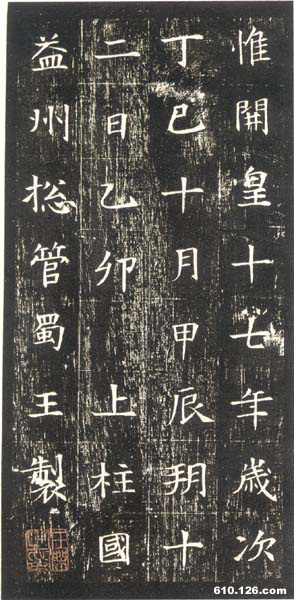 惟開皇十七年歲次
丁巳十月甲辰朔十
二日乙卯上柱國
益州揔管蜀王製
610.126.com